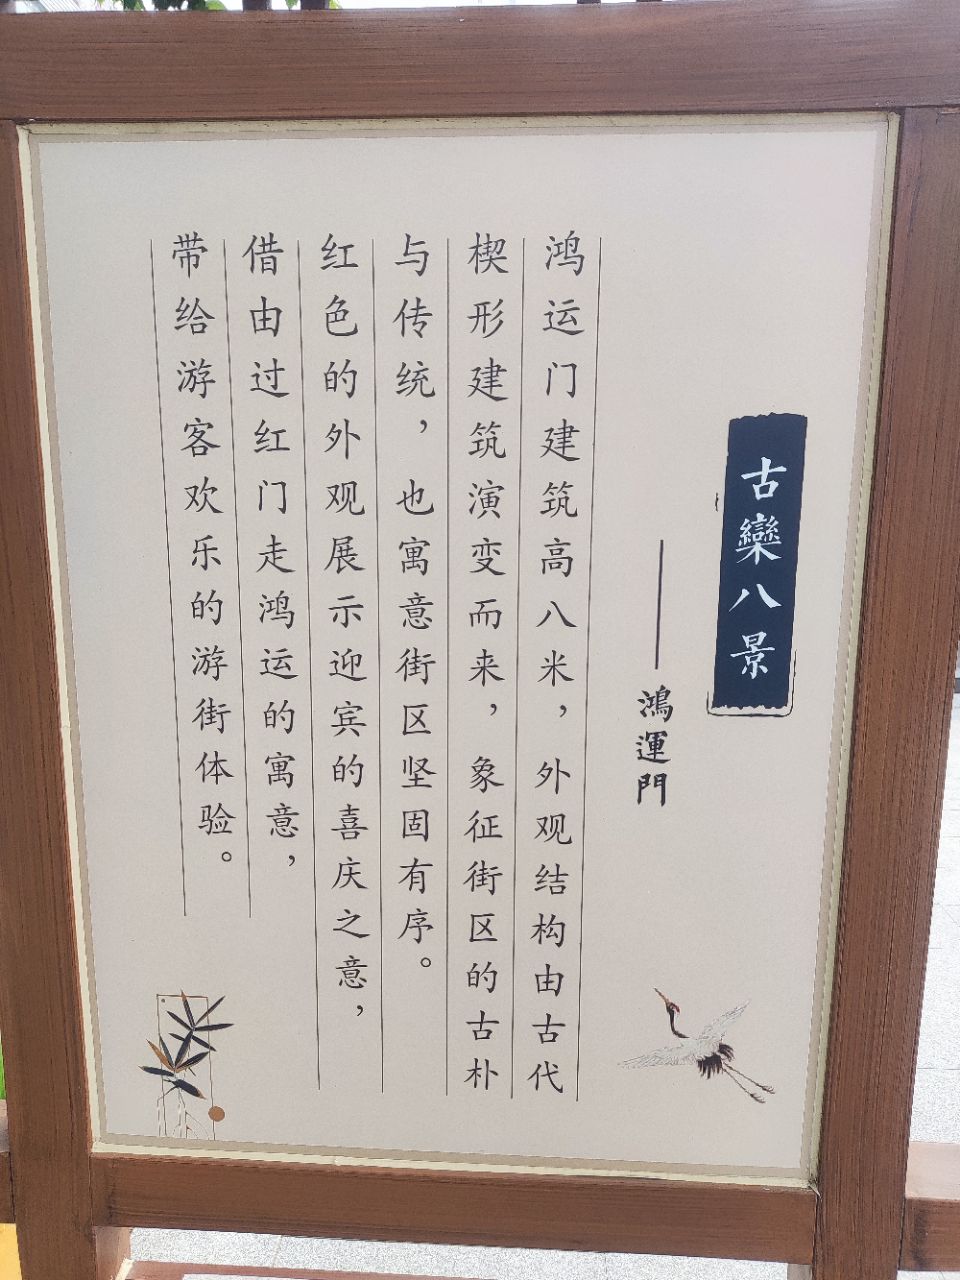 古欒八景
——鴻運門
鸿运门建筑高八米，外观结构由古代
楔形建筑演变而来，象征街区的古朴
与传统，也寓意街区坚固有序。
红色的外观展示迎宾的喜庆之意，
借由过红门走鸿运的寓意，
带给游客欢乐的游街体验。